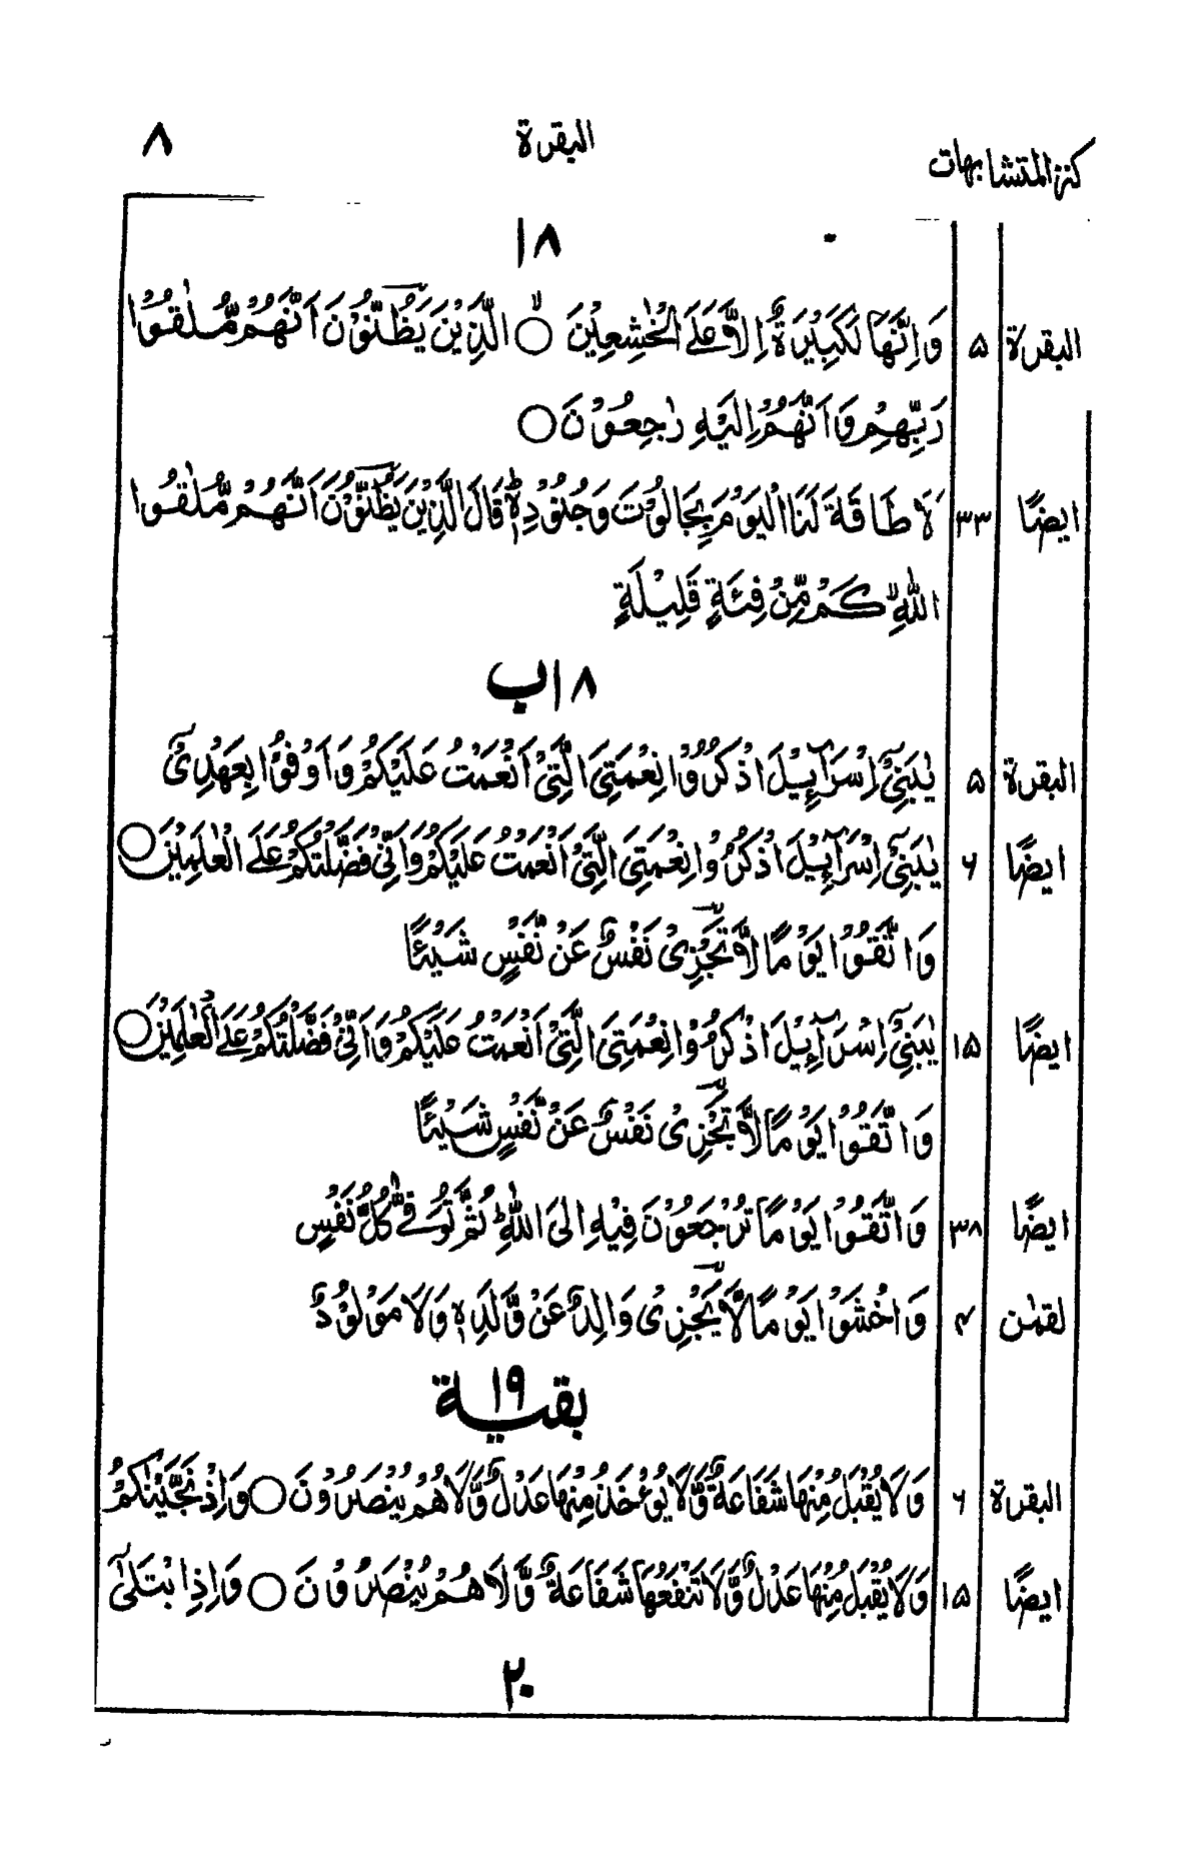 كنز المتشابهات البقرة ٨
١٨
البقرة ۵ وَاِنَّهَا لَكَبِيْرَةٌ اِلَّا عَلَى الْخٰشِعِيْنَ ○ الَّذِيْنَ يَظُنُّوْنَ اَنَّهُمْ مُّلٰقُوْا
رَبِّهِمْ وَاَنَّهُمْ اِلَيْهِ رٰجِعُوْنَ ○
ايضًا ٣٣ لَا طَاقَةَ لَنَا الْيَوْمَ بِجَالُوْتَ وَجُنُوْدِهٖ ؕ قَالَ الَّذِيْنَ يَظُنُّوْنَ اَنَّهُمْ مُّلٰقُوا
اللّٰهِ ۙ كَمْ مِّنْ فِئَةٍ قَلِيْلَةٍ
١٨ ب
البقرة ۵ يٰبَنِيْٓ اِسْرَآءِيْلَ اذْكُرُوْا نِعْمَتِيَ الَّتِيْٓ اَنْعَمْتُ عَلَيْكُمْ وَاَوْفُوْا بِعَهْدِيْٓ
ايضًا ۶ يٰبَنِيْٓ اِسْرَآءِيْلَ اذْكُرُوْا نِعْمَتِيَ الَّتِيْٓ اَنْعَمْتُ عَلَيْكُمْ وَاَنِّيْ فَضَّلْتُكُمْ عَلَى الْعٰلَمِيْنَ ○
وَاتَّقُوْا يَوْمًا لَّا تَجْزِيْ نَفْسٌ عَنْ نَّفْسٍ شَيْـًٔا
ايضًا ١۵ يٰبَنِيْٓ اِسْرَآءِيْلَ اذْكُرُوْا نِعْمَتِيَ الَّتِيْٓ اَنْعَمْتُ عَلَيْكُمْ وَاَنِّيْ فَضَّلْتُكُمْ عَلَى الْعٰلَمِيْنَ ○
وَاتَّقُوْا يَوْمًا لَّا تَجْزِيْ نَفْسٌ عَنْ نَّفْسٍ شَيْـًٔا
ايضًا ٣٨ وَاتَّقُوْا يَوْمًا تُرْجَعُوْنَ فِيْهِ اِلَى اللّٰهِ ۗ ثُمَّ تُوَفّٰى كُلُّ نَفْسٍ
لقمٰن ۴ وَاخْشَوْا يَوْمًا لَّا يَجْزِيْ وَالِدٌ عَنْ وَّلَدِهٖ وَلَا مَوْلُوْدٌ
بقية ١٩
البقرة ۶ وَلَا يُقْبَلُ مِنْهَا شَفَاعَةٌ وَّلَا يُؤْخَذُ مِنْهَا عَدْلٌ وَّلَا هُمْ يُنْصَرُوْنَ ○ وَاِذْ نَجَّيْنٰكُمْ
ايضًا ١۵ وَلَا يُقْبَلُ مِنْهَا عَدْلٌ وَّلَا تَنْفَعُهَا شَفَاعَةٌ وَّلَا هُمْ يُنْصَرُوْنَ ○ وَاِذِ ابْتَلٰىٓ
٢٠